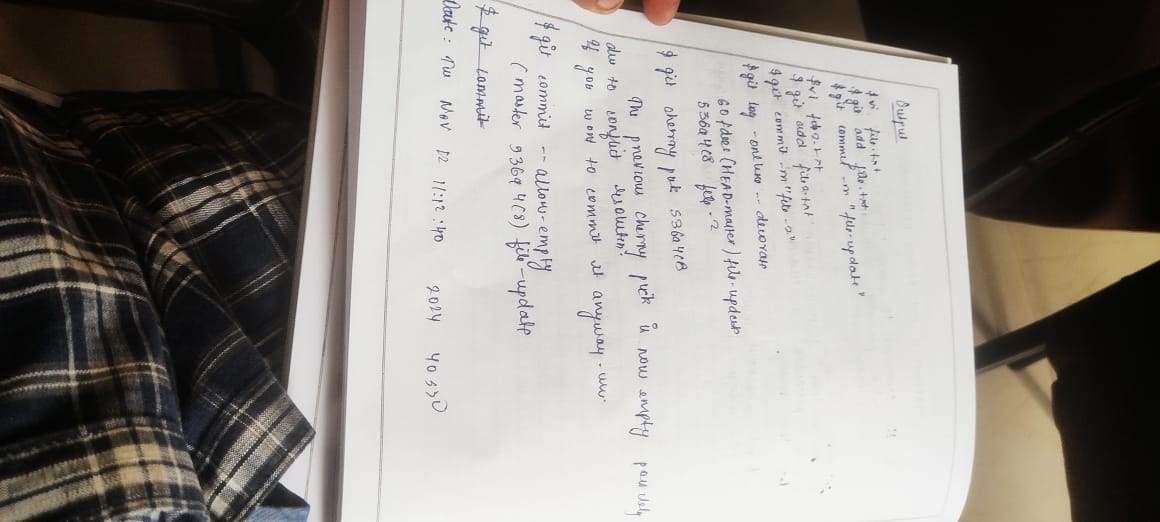 Output
$ vi file.txt
$ git add file.txt
$ git commit -m "file-update"
$ vi file2.txt
$ git add file2.txt
$ git commit -m "file-2"
$ git log --oneline -- decorate
60fdeae (HEAD-master) file-update
536a4c8 file-2
$ git cherry pick 536a4c8
The previous cherry pick is now empty
due to conflict resolution!
If you wont to commit it anyway. use:
$ git commit -- allow-empty
(master 936a4c8) file-update
$ git commit
Date: Tu Nov 12 11:12:40 2024 +0530